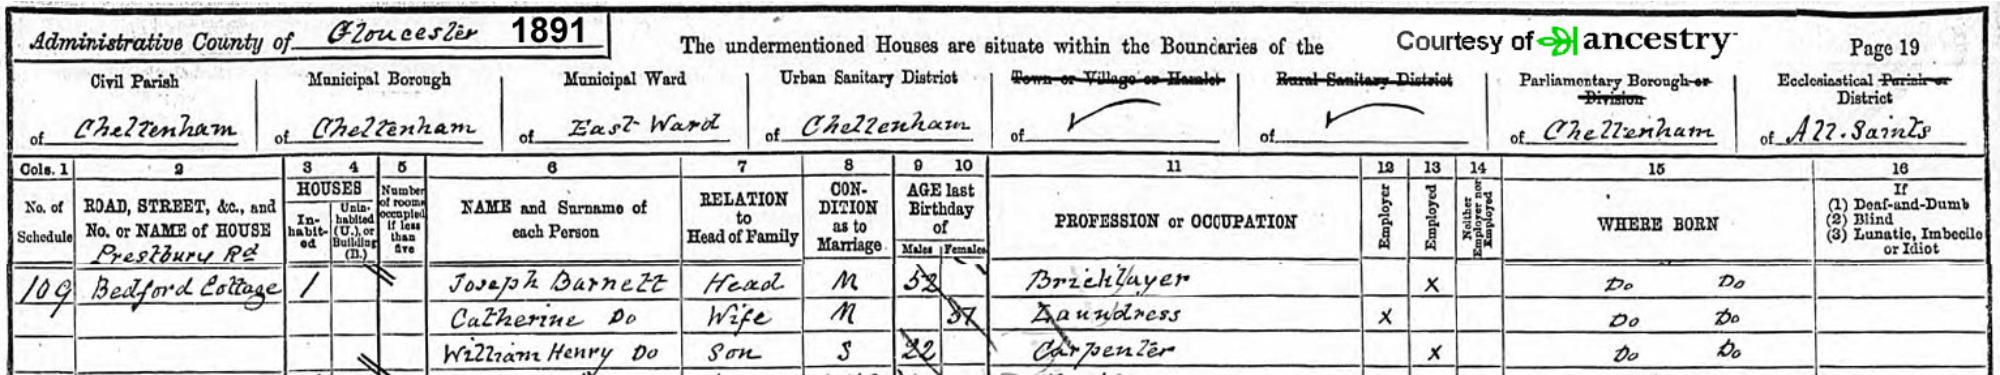 Administrative County of Gloucester 1891 The undermentioned Houses are situate within the Boundaries of the Courtesy of ancestry Page 19
Civil Parish Municipal Borough Municipal Ward Urban Sanitary District Town or Village or Hamlet Rural Sanitary District Parliamentary Borough or Division Ecclesiastical Parish or District
of Cheltenham of Cheltenham of East Ward of Cheltenham of of of Cheltenham of All. Saints
Cols. 1 2 3 4 5 6 7 8 9 10 11 12 13 14 15 16
No. of Schedule
ROAD, STREET, &c., and No. or NAME of HOUSE
Prestbury Rd
HOUSES
In-habit-ed
Unin-habited (U.), or Building (B.)
Number of rooms occupied if less than five
NAME and Surname of each Person
RELATION to Head of Family
CON-DITION as to Marriage
AGE last Birthday of
Males Females
PROFESSION or OCCUPATION
Employer
Employed
Neither Employer nor Employed
WHERE BORN
If
(1) Deaf-and-Dumb
(2) Blind
(3) Lunatic, Imbecile or Idiot
109 Bedford Cottage 1 Joseph Barnett Head M 52 Bricklayer X Do Do
Catherine Do Wife M Laundress X Do Do
William Henry Do Son S 22 Carpenter X Do Do